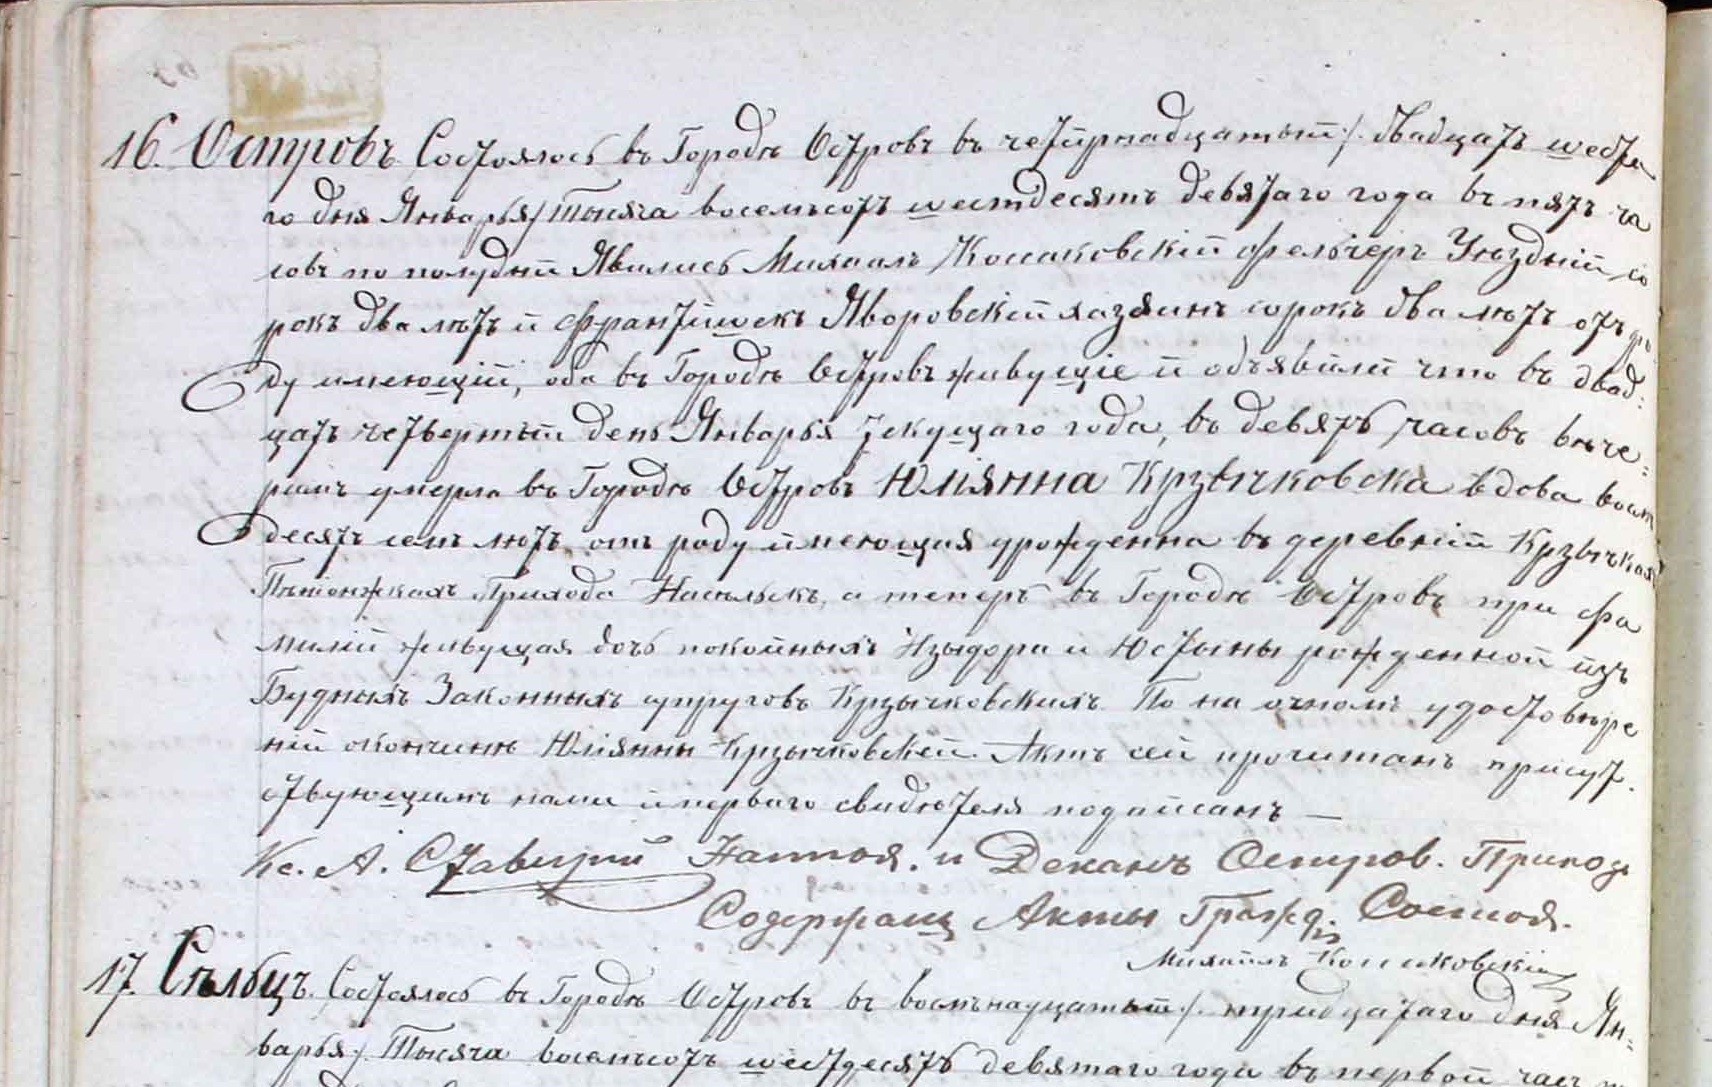 16. Островъ. Состоялось въ Городѣ Островѣ въ четырнадцатый /. двадцать шеста
го дня Январья/ Тысяча восемьсотъ шестдесятъ девятаго года въ пять ча
совъ по полудній Явились Михаилъ Коссаковскій фельчеръ Уѣздный со
рокъ два лѣтъ и Францишекъ Яворовскій хазяинъ сорокъ два лѣтъ отъ ро
ду имеющій, оба въ Городѣ Островѣ живущіе и объявили что въ двад:
цать четвертый день Январья текущаго года, въ девять часовъ вѣче:
ромъ умерла въ Городѣ Островѣ Юліянна Крзычковска вдова восм
десятъ семъ лѣтъ отъ роду имеющая урожденна въ деревній Крзычках
Пѣніонжкахъ Прихода Насѣльскъ, а теперъ въ Городѣ Островѣ при фа
милій живущая дочь покойныхъ Изыдора и Юстыны рожденной изъ
Будныхъ Законныхъ супруговъ Крзычковскихъ. По на очномъ удостовѣре
ній окончинѣ Юліянны Крзычковской. Актъ сей прочитанъ присут.
ствующимъ нами и перваго свидѣтеля подписанъ —
Кс. А. Настоя. и Деканъ Остров. Приход
Содержащ Акты Гражд. Состоя.
Михаилъ Коссаковскій
17. Сѣльцъ. Состоялось въ Городѣ Островѣ въ восмьнадцатый /. тридцатаго дня Ян:
варья/. Тысяча восемьсотъ шестдесятъ девятаго года въ первой час